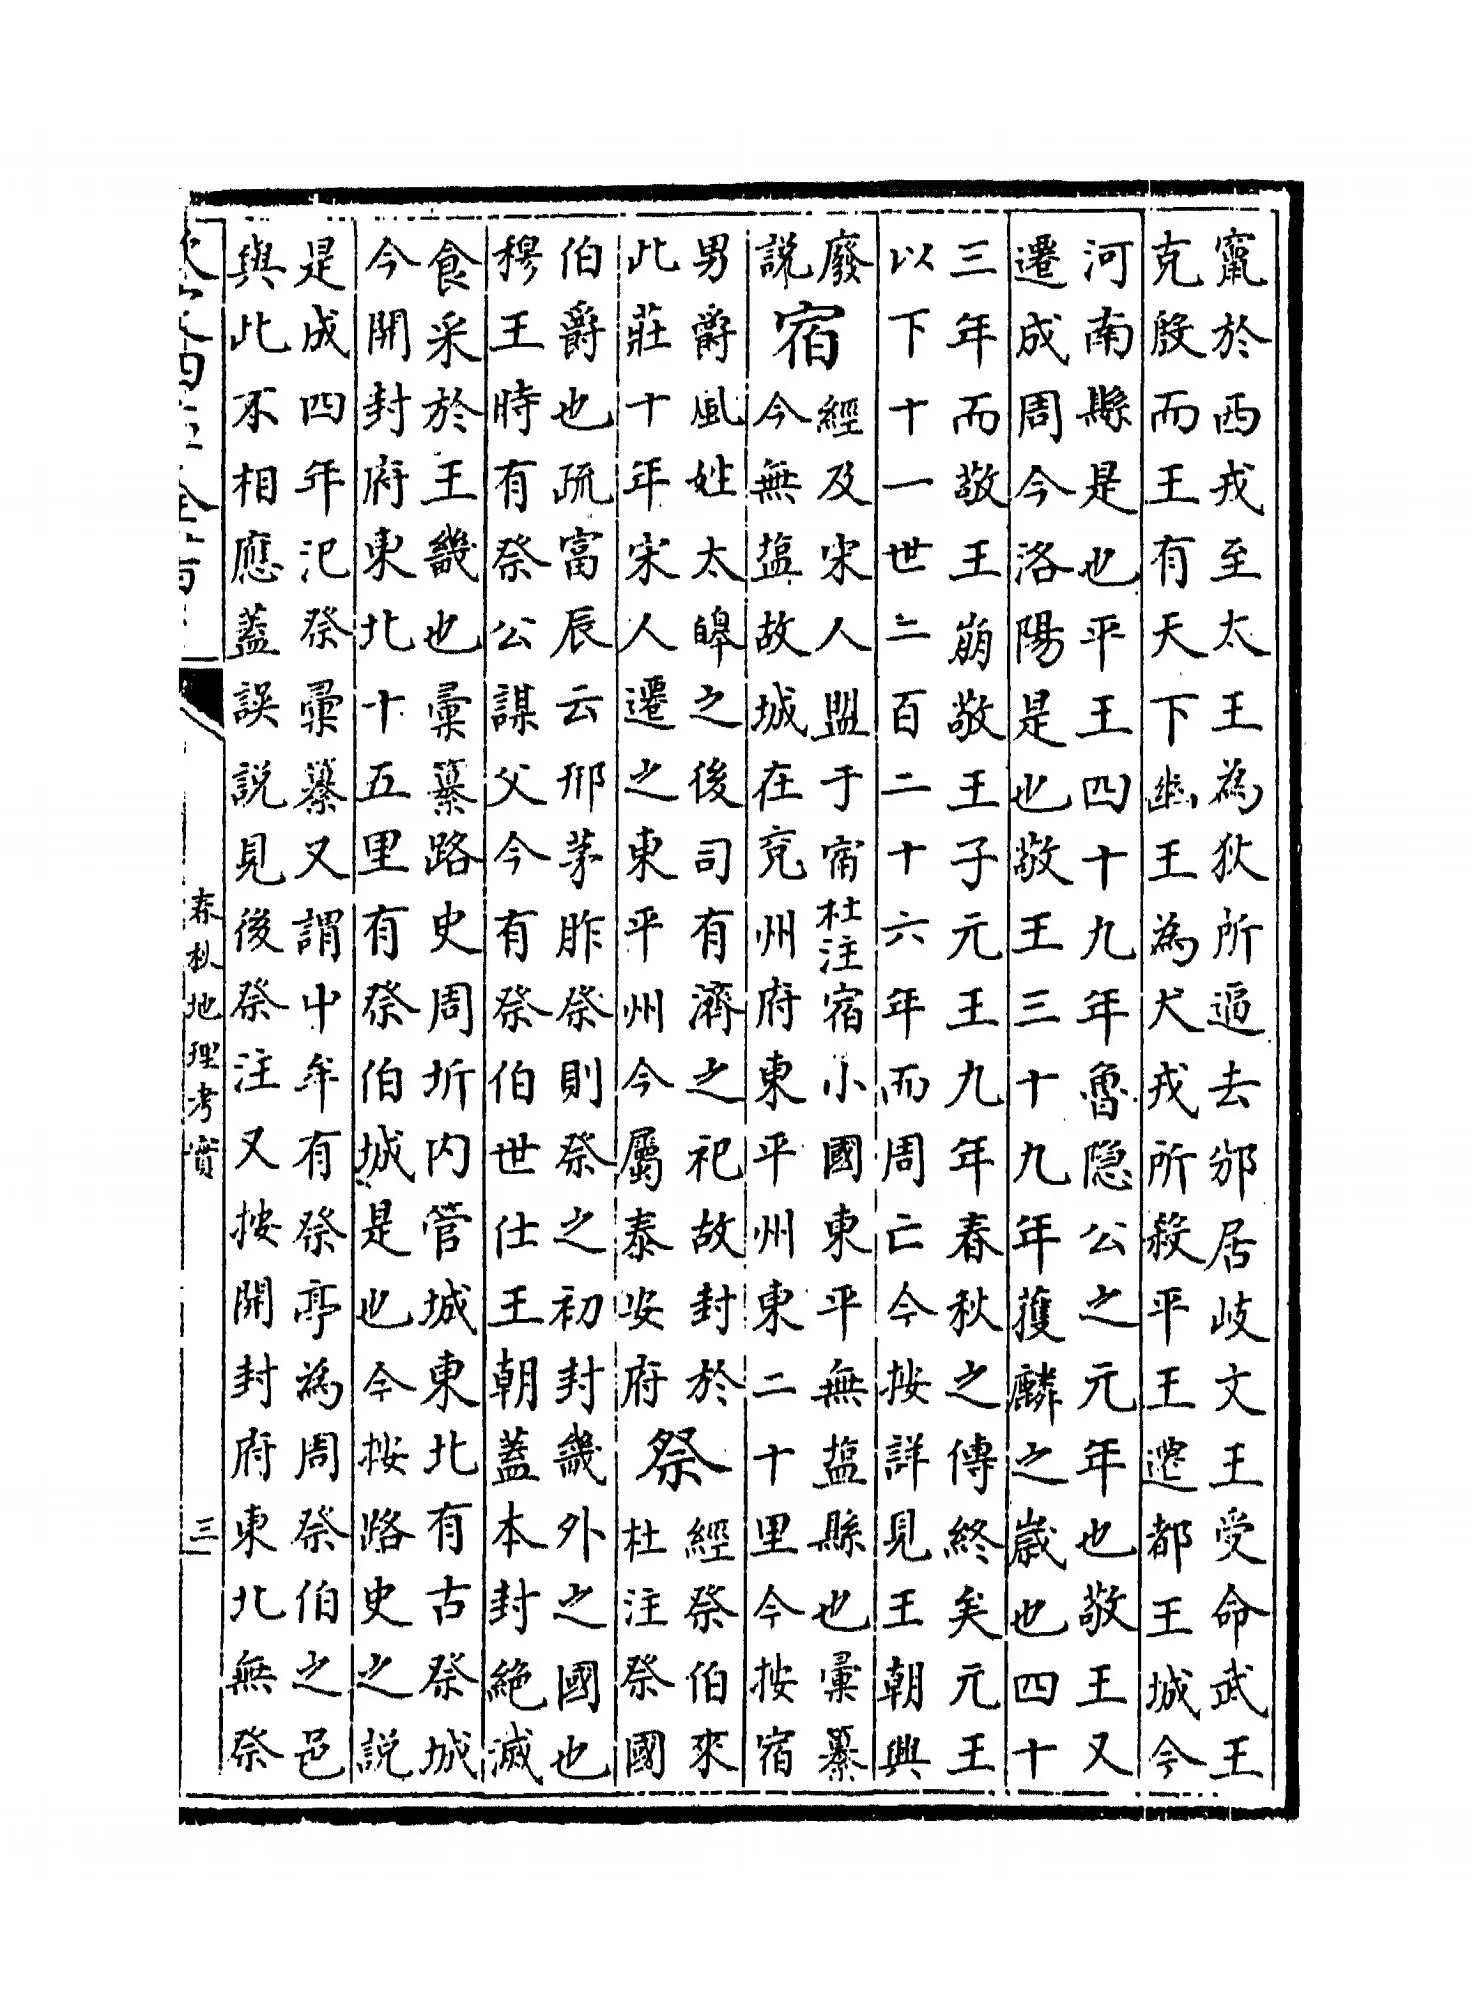 竄於西戎至太王為狄所逼去邠居岐文王受命武王
克殷而王有天下幽王為犬戎所殺平王遷都王城今
河南縣是也平王四十九年魯隐公之元年也敬王又
遷成周今洛陽是也敬王三十九年獲麟之歲也四十
三年而敬王崩敬王子元王九年春秋之傳終矣元王
以下十一世二百二十六年而周亡今按詳見王朝興
廢
説
宿
經及宋人盟于宿杜注宿小國東平無塩縣也彚纂
今無塩故城在兖州府東平州東二十里今按宿
男爵風姓太皥之後司有濟之祀故封於
此莊十年宋人遷之東平州今屬泰安府
祭
經祭伯來
杜注祭國
伯爵也疏富辰云邢茅胙祭則祭之初封畿外之國也
穆王時有祭公謀父今有祭伯世仕王朝蓋本封絶滅
食采於王畿也彚纂路史周圻内管城東北有古祭城
今開封府東北十五里有祭伯城是也今按路史之説
是成四年汜祭彚纂又謂中牟有祭亭為周祭伯之邑
與此不相應蓋誤説見後祭注又按開封府東北無祭
春秋地理考實
三